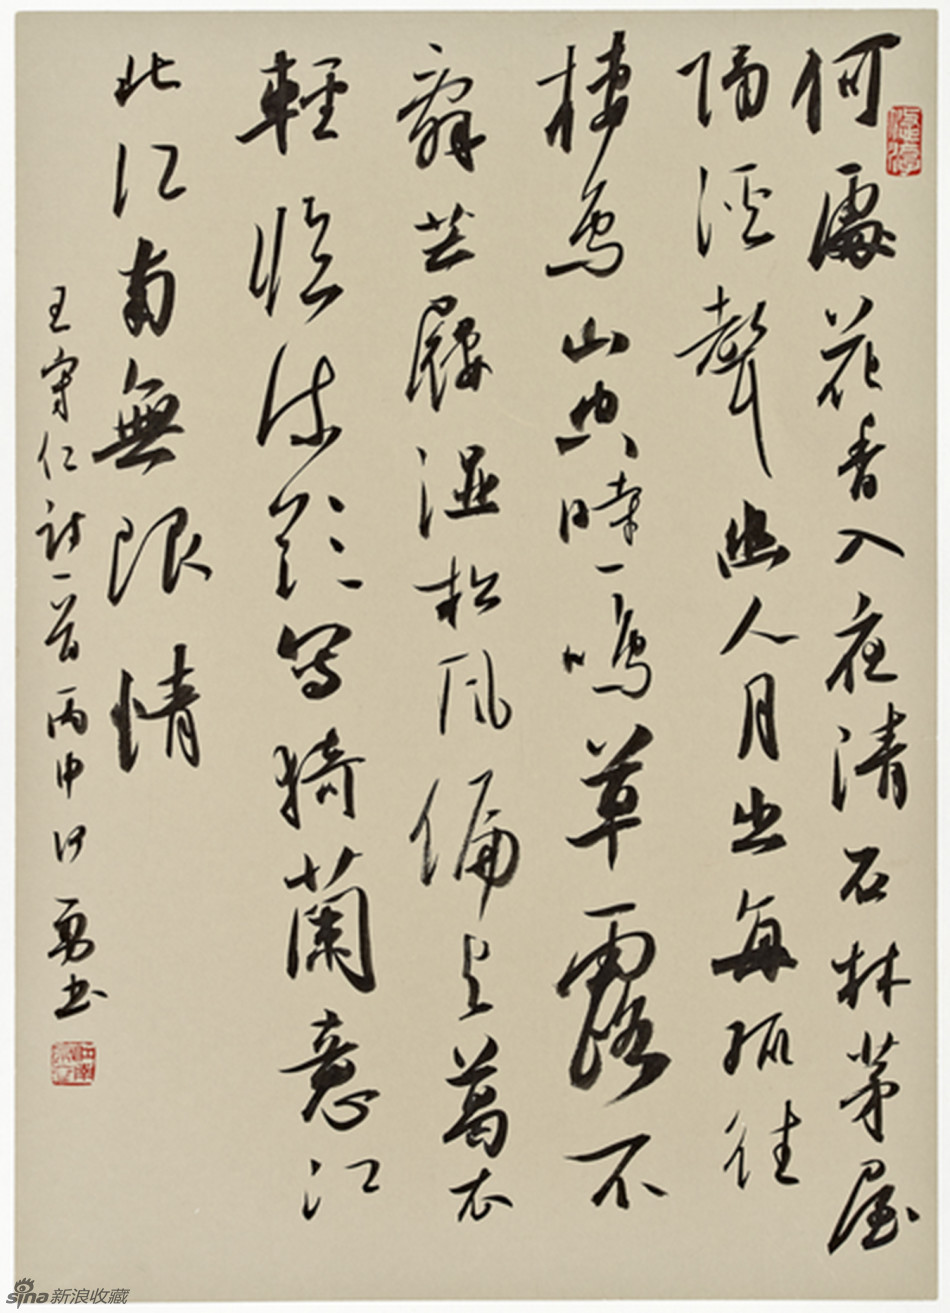 何處花香入夜清石林茅屋
隔溪聲幽人月出每孤往
棲鳥山空時一鳴草露不
辭芒屨濕松風偏与葛衣
輕臨流欲寫猗蘭意江
北江南無限情
王守仁詩一首丙申勇书
sina新浪收藏